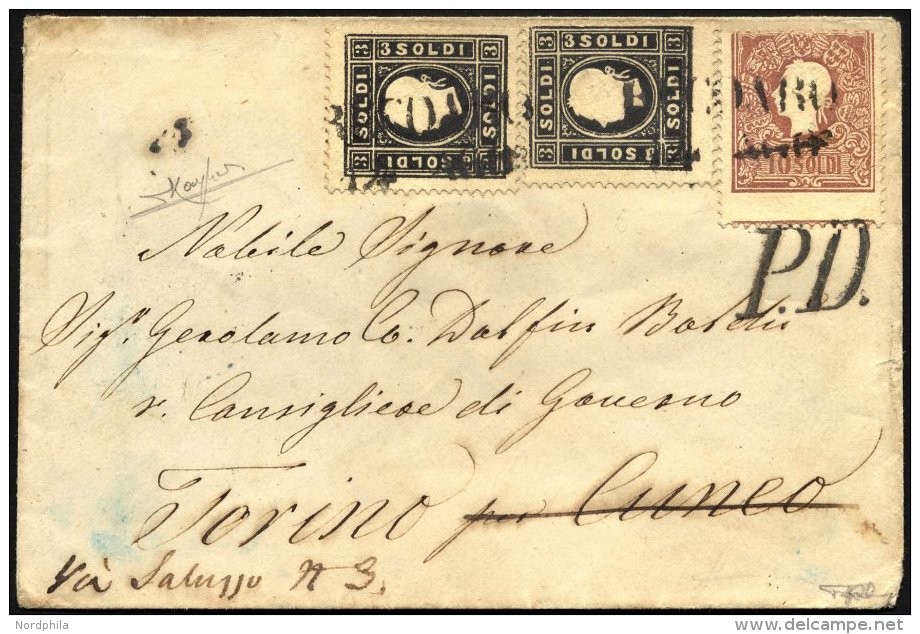 3 SOLDI
SOLDI
SOLDI
3 SOLDI
3 SOLDI
SOLDI
SOLDI
3 SOLDI
10 SOLDI
P.D.
Nobile Signore
Sigr. Gerolamo Co. Dolfin Boldù
r. Consigliere di Governo
Torino per Cuneo
Via Saluzzo N 3.
Nordphila
delcampe.net